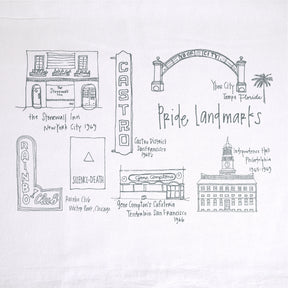 The Stonewall Inn
the Stonewall Inn
New York City 1969
CASTRO
Castro District
San Francisco
YBOR CITY
Ybor City
Tampa Florida
Pride Landmarks
Independence Hall
Philadelphia
1965-1969
RAINBO
Club
SILENCE=DEATH
Rainbo Club
Wicker Park, Chicago
Gene Compton's
Gene Compton's Cafeteria
Tenderloin San Francisco
1966